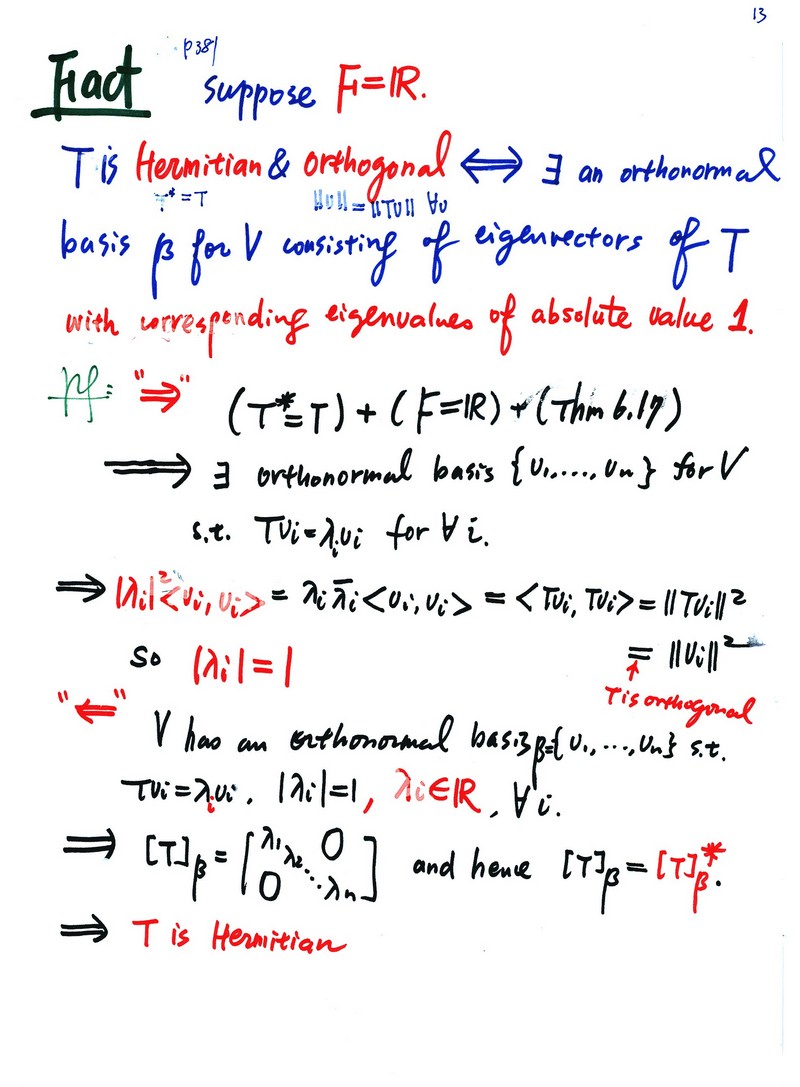 13
p381
Fact suppose F=ℝ.
T is Hermitian & orthogonal ⟺ ∃ an orthonormal
T*=T ||υ||=||Tυ|| ∀υ
basis β for V consisting of eigenvectors of T
with corresponding eigenvalues of absolute value 1.
pf: "⇒" (T*=T) + (F=ℝ) + (Thm 6.17)
⟹ ∃ orthonormal basis {υ₁,....,υₙ} for V
s.t. Tυᵢ=λᵢυᵢ for ∀ i.
⟹ |λᵢ|²<υᵢ,υᵢ> = λᵢλ̄ᵢ<υᵢ,υᵢ> = <Tυᵢ,Tυᵢ> = ||Tυᵢ||²
so |λᵢ|=1 = ||υᵢ||²
↑
T is orthogonal
"⇐"
V has an orthonormal basis β={υ₁,...,υₙ} s.t.
Tυᵢ=λᵢυᵢ. |λᵢ|=1, λᵢ∈ℝ, ∀i.
⟹ [T]β = [λ₁ λ₂ ⋱ λₙ 0 0] and hence [T]β = [T]β*.
⟹ T is Hermitian